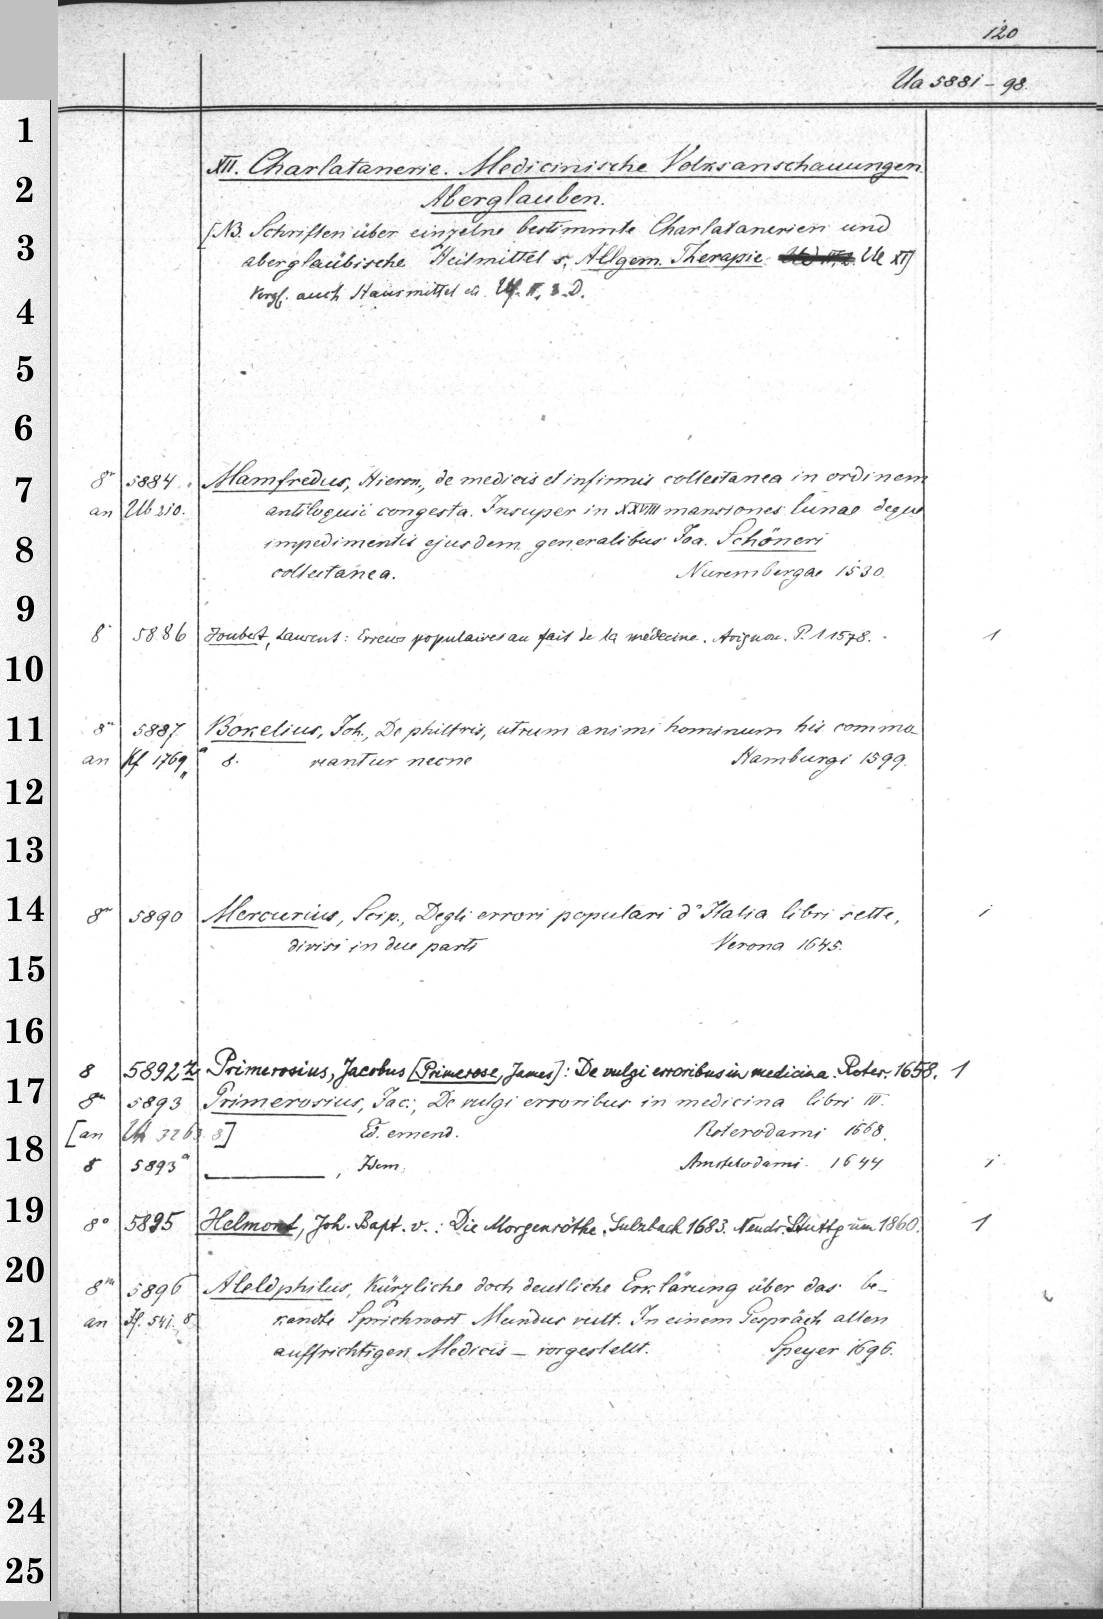 120
Ua 5881-98.
XII. Charlatanerie. Medicinische Volksanschauungen.
Aberglauben.
[NB. Schriften über einzelne bestimmte Charlatanerien und
abergläubische Heilmittel s. Allgem. Therapie Ue XI]
Vergl. auch Hausmittel etc. Uf. II. 3. D.
8° 5884. Mamfredus, Hieron., de medicis et infirmis collectanea in ordinem
an Ub 210. antiloquii congesta. Insuper in XXVIII mansiones lunae deque
impedimentis ejusdem generalibus Joa. Schöneri
collectanea. Nurembergae 1530.
8° 5886 Joubert, Laurent: Erreurs populaires au fait de la médecine. Avignon. P. 1 1578. 1
8° 5887 Bokelius, Joh., De philtris, utrum animi hominum his commo-
an Kf 1769 8. veantur necne Hamburgi 1599.
8° 5890 Mercurius, Scip., Degli errori populari d'Italia libri sette, 1
divisi in due parti Verona 1645.
8 5892 Primerosius, Jacobus [Primerose, James]: De vulgi erroribus in medicina. Roter. 1658. 1
8° 5893 Primerosius, Jac., De vulgi erroribus in medicina libri IV.
[an Uh 3263. 8] Ed. emend. Roterodami 1668.
8 5893a ———, Idem. Amstelodami. 1644 1
8° 5895 Helmont, Joh. Bapt. v.: Die Morgenröthe. Sulzbach 1683. Neudr. Stuttg um 1860. 1
8° 5896 Aleldphilus, Kürzliche doch deutliche Erklärung über das be-
an Jf. 541. 8 kandte Sprichwort Mundus vult. In einem Gespräch allen
auffrichtigen Medicis — vorgestellt. Speyer 1696.
1
2
3
4
5
6
7
8
9
10
11
12
13
14
15
16
17
18
19
20
21
22
23
24
25